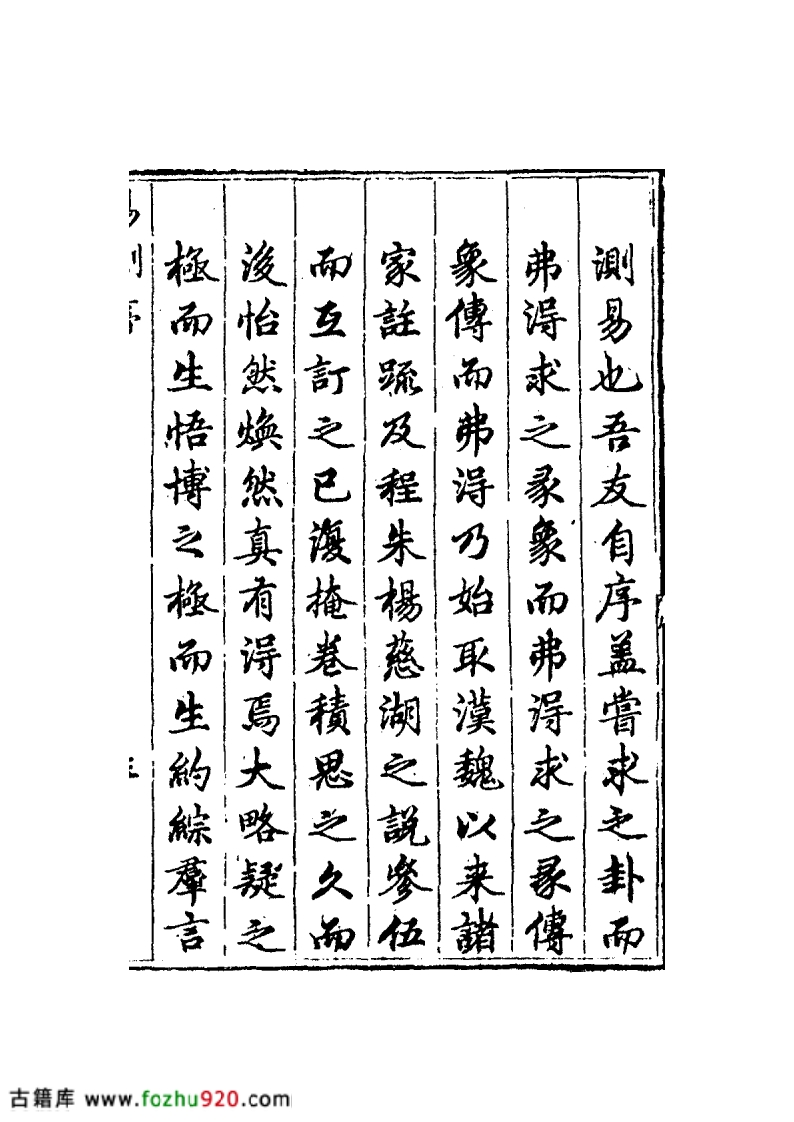 測易也吾友自序蓋嘗求之卦而
弗得求之彖象而弗得求之彖傳
象傳而弗得乃始取漢魏以来諸
家註疏及程朱楊慈湖之說參伍
而互訂之已復掩卷積思之久而
後怡然煥然真有得焉大略疑之
極而生悟博之極而生約綜羣言
古籍库 www.fozhu920.com